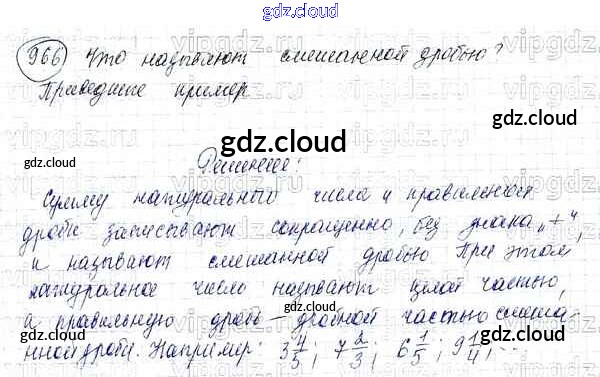 gdz.cloud
966 Что называют смешанной дробью?
Приведите пример
gdz.cloud
gdz.cloud
gdz.cloud
gdz.cloud
Решение:
Сумму натурального числа и правильной
дроби записывают сокращенно, без знака „+“,
и называют смешанной дробью При этом
натуральное число называют целой частью,
а правильную дробь – дробной частью смеша-
нной дроби. Например: 3 4/5; 7 2/3; 6 1/5; 9 1/4; ...
gdz.cloud
gdz.cloud
gdz.cloud